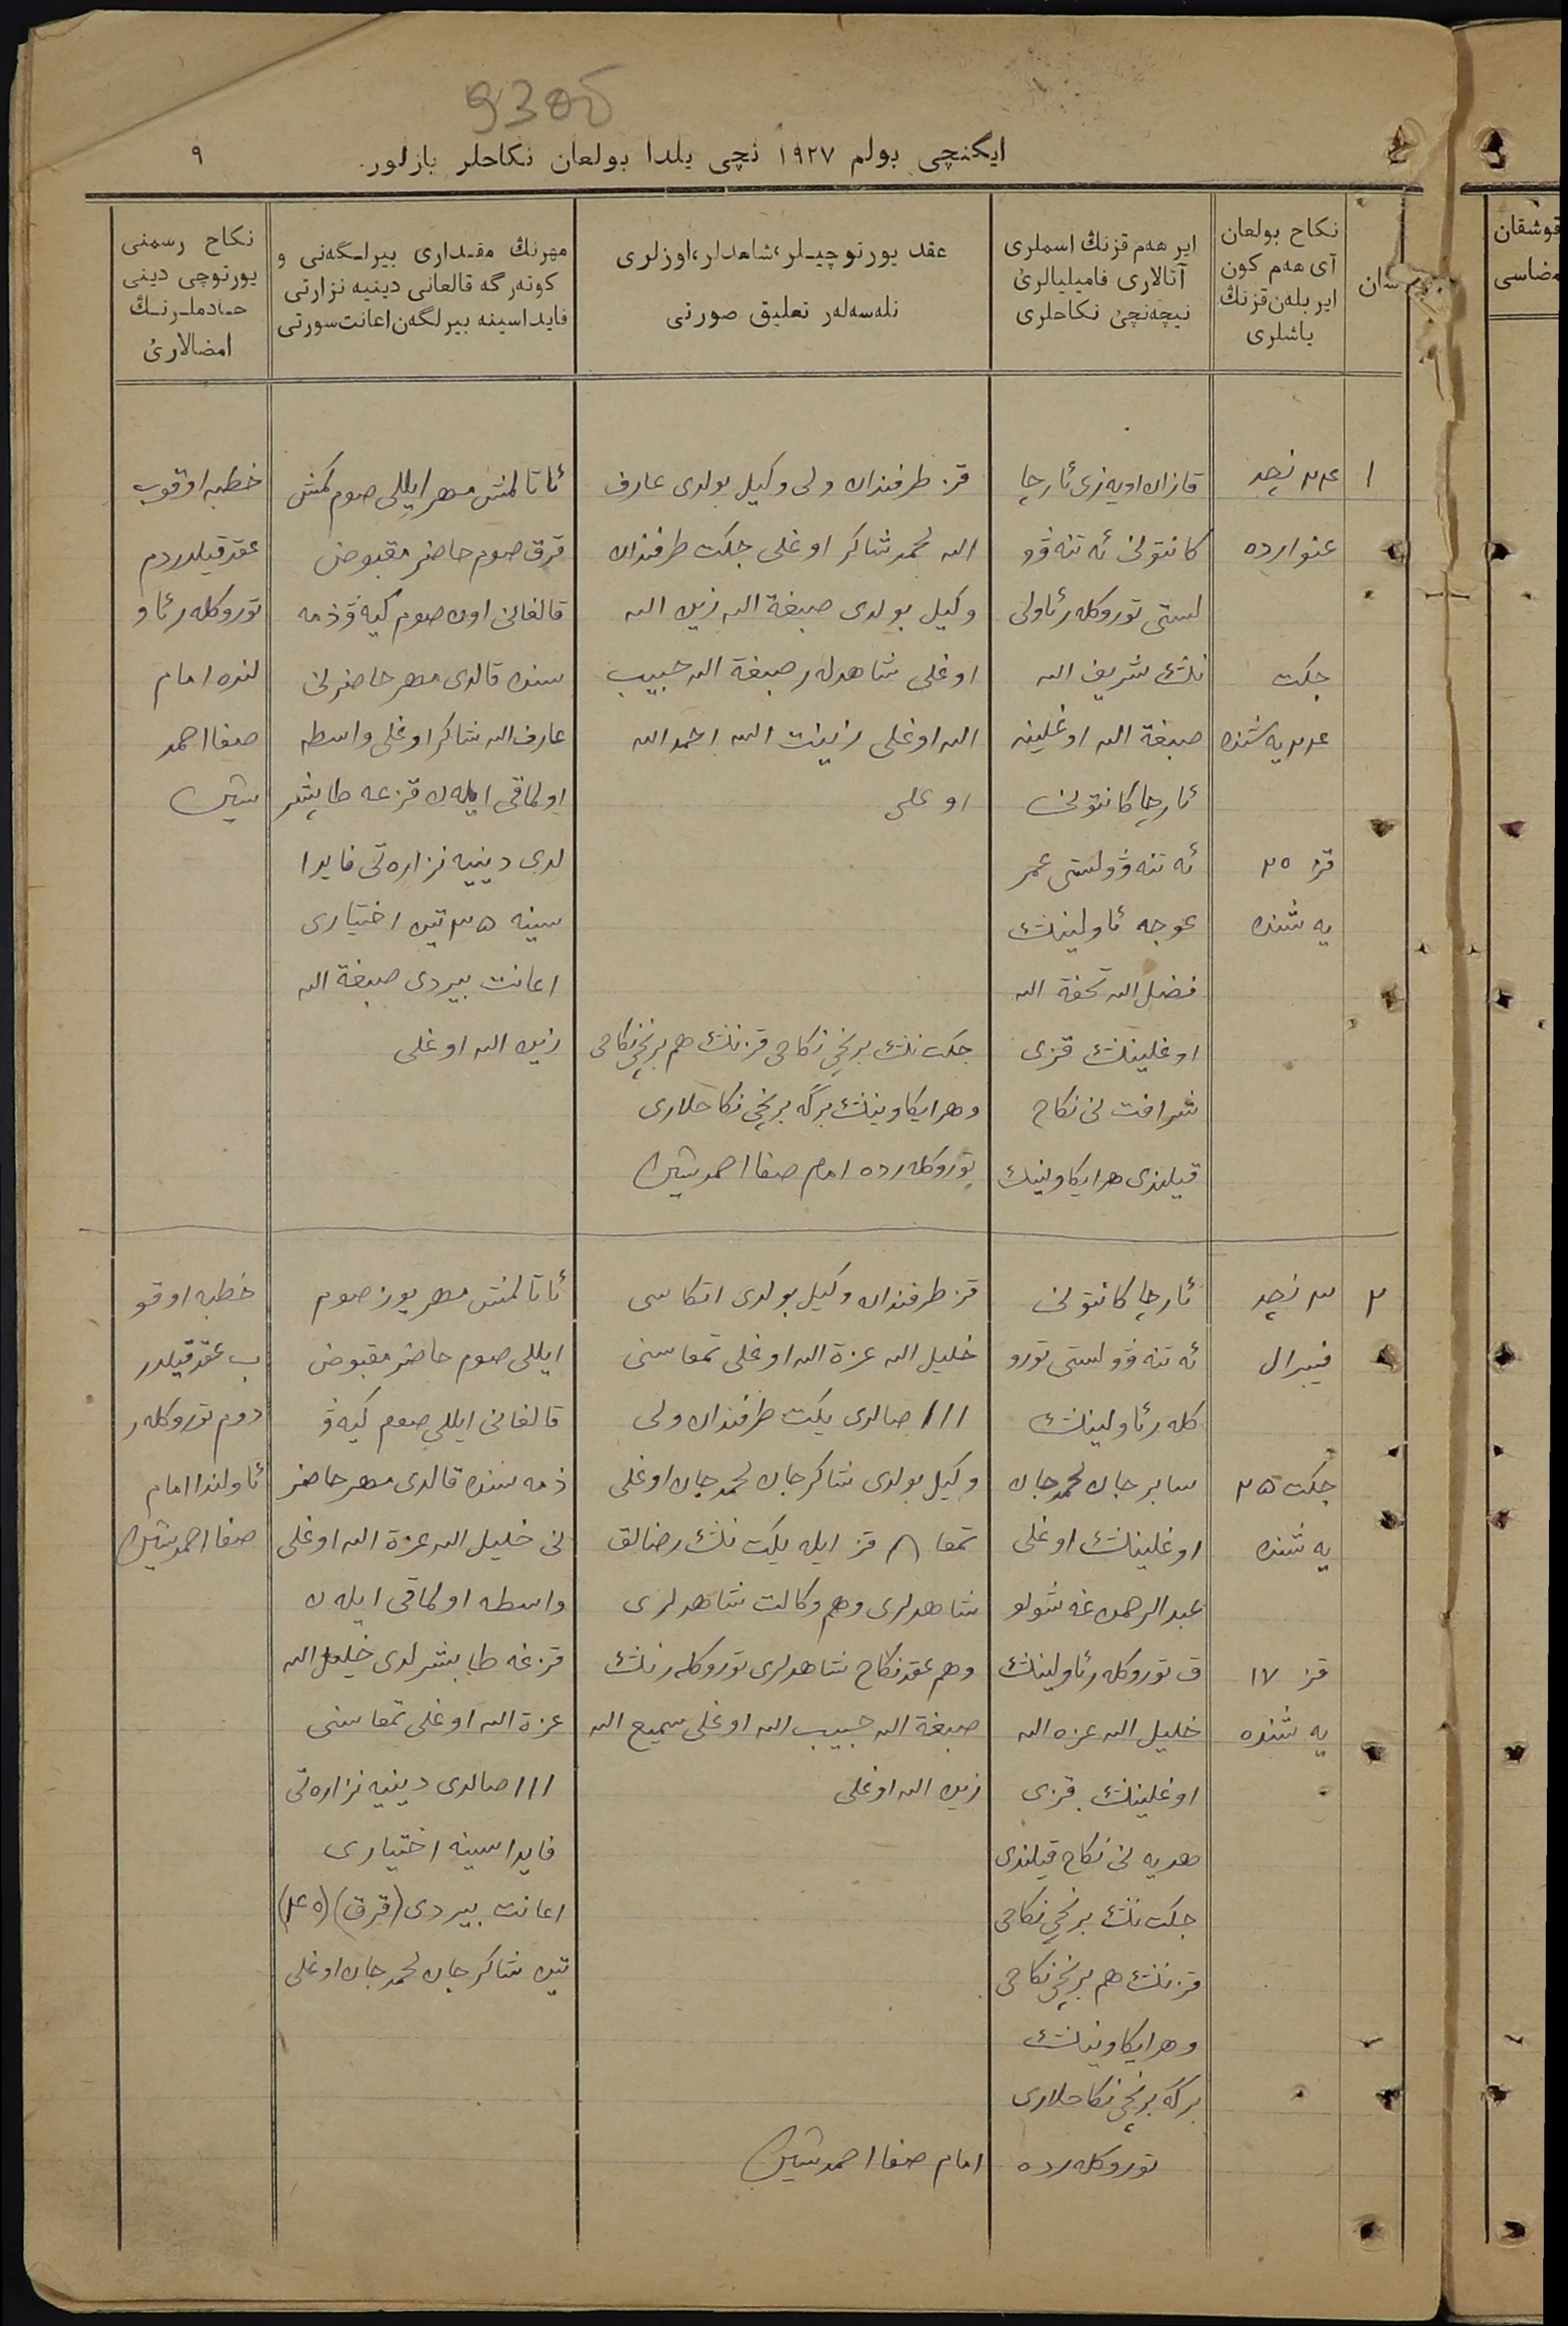 930б
ایکنچی بولم ١٩٢٧ نچی یلدا بولعان نکاحلر یازلور.
٩
سان
نکاح بولعان
آی هەم کون
ایر بلەن قزنڭ
یاشلری
ایر هەم قزنڭ اسملری
آتالاری فامیلیالرئ
نیچەنچئ نکاحلری
عقد یورتوچیلر، شاهدلر، اوزلری
نلەسەلەر تعلیق صورتی
مهرنڭ مقداری بیرلگەنی و
کوتەرگه قالعانی دینیه نزارتی
فایداسینه بیرلگەن اعانت سورتی
نکاح رسمنی
یورتوچی دینی
حادملرنڭ
امضالارئ
قوشقان
مضاسی
١
٢٤ نچد
عنوارده
جکت
٢٤ یه شنده
قز ٢٥
یه شنده
قازان اویەزی ئارچا
کانتونی ئه تنه ۋو
لستی توروکلەر ئاولی
ننڭ شریف الله
صبغة الله اوغلینه
ئارچا کانتونی
ئه تنه ۋولستی عمر
خوجه ئاولینڭ
فضل الله تحفة الله
اوغلیننڭ قزی
شرافت نی نکاح
قیلندی هر ایکاولینڭ
قز طرفندان ولی وکیل بولدی عارف
الله محمد شاکر اوغلی جکت طرفندان
وکیل بولدی صبغة الله زین الله
اوغلی شاهدلەر صبغة الله حبیب
الله اوغلی زینت الله احمد الله
اوغلی
جکت ننڭ برنچی نکاحی قزننڭ هم برنچی نکاحی
وهر ایکاوینڭ برگه برنچی نکاحلاری
توروکلەرده امام صفا احمد
ئاتالمش مهر ایللی صوم کمش
قرق صوم حاضر مقبوض
قالغانی اون صوم کیەۋ ذمه
سنده قالدی مهر حاضرنی
عارف الله شاکر اوغلی واسطه
اولماقی ایلەن قزعه طابشر
لدی دینیه نزارەتی فایدا
سینه ٣٥ تین اختیاری
اعانت بیردی صبغة الله
زین الله اوغلی
خطبه اوقوب
عقد قیلدردم
توروکلەر ئاو
لنده امام
صفا احمد
٢
٣ نچد
فیبرال
جکت ٢٥
یه شنده
قز ١٧
یه شنده
ئارچا کانتونی
ئه تنه ۋولستی تورو
کلەر ئاولینڭ
سابر جان محمد جان
اوغلینڭ اوغلی
عبد الرحمن غه شولو
ق توروکلەر ئاولینڭ
خلیل الله عزه الله
اوغلینڭ قزی
هدیه نی نکاح قیلندی
جکت ننڭ برنچی نکاحی
قزننڭ هم برنچی نکاحی
وهر ایکاوینڭ
برگه برنچی نکاحلاری
توروکلەرده
قز طرفندان وکیل بولدی اتکاسی
خلیل الله عزة الله اوغلی تمغاسنی
/ / / صالدی یکت طرفندان ولی
وکیل بولدی شاکر جان محمد جان اوغلی
تمغا ٨ قز ایله یکت ننڭ رضالق
شاهدلری وهم وکالت شاهدلری
وهم عقد نکاح شاهدلری توروکلەرننڭ
صبغة الله حبیب الله اوغلی سمیع الله
زین الله اوغلی
امام صفا احمد
ئاتالمش مهر یوز صوم
ایللی صوم حاضر مقبوض
قالغانی ایللی صوم کیەۋ
ذمه سنده قالدی مهر حاضر
نی خلیل الله عزة الله اوغلی
واسطه اولماقی ایلەن
قزغه طابشرلدی خلیل الله
عزة الله اوغلی تمغاسنی
/ / / صالدی دینیه نزارەتی
فایداسینه اختیاری
اعانت بیردی (قرق) (٤٠)
تین شاکر جان محمد جان اوغلی
خطبه اوقو
ب عقد قیلدر
دوم توروکلەر
ئاولندا امام
صفا احمد